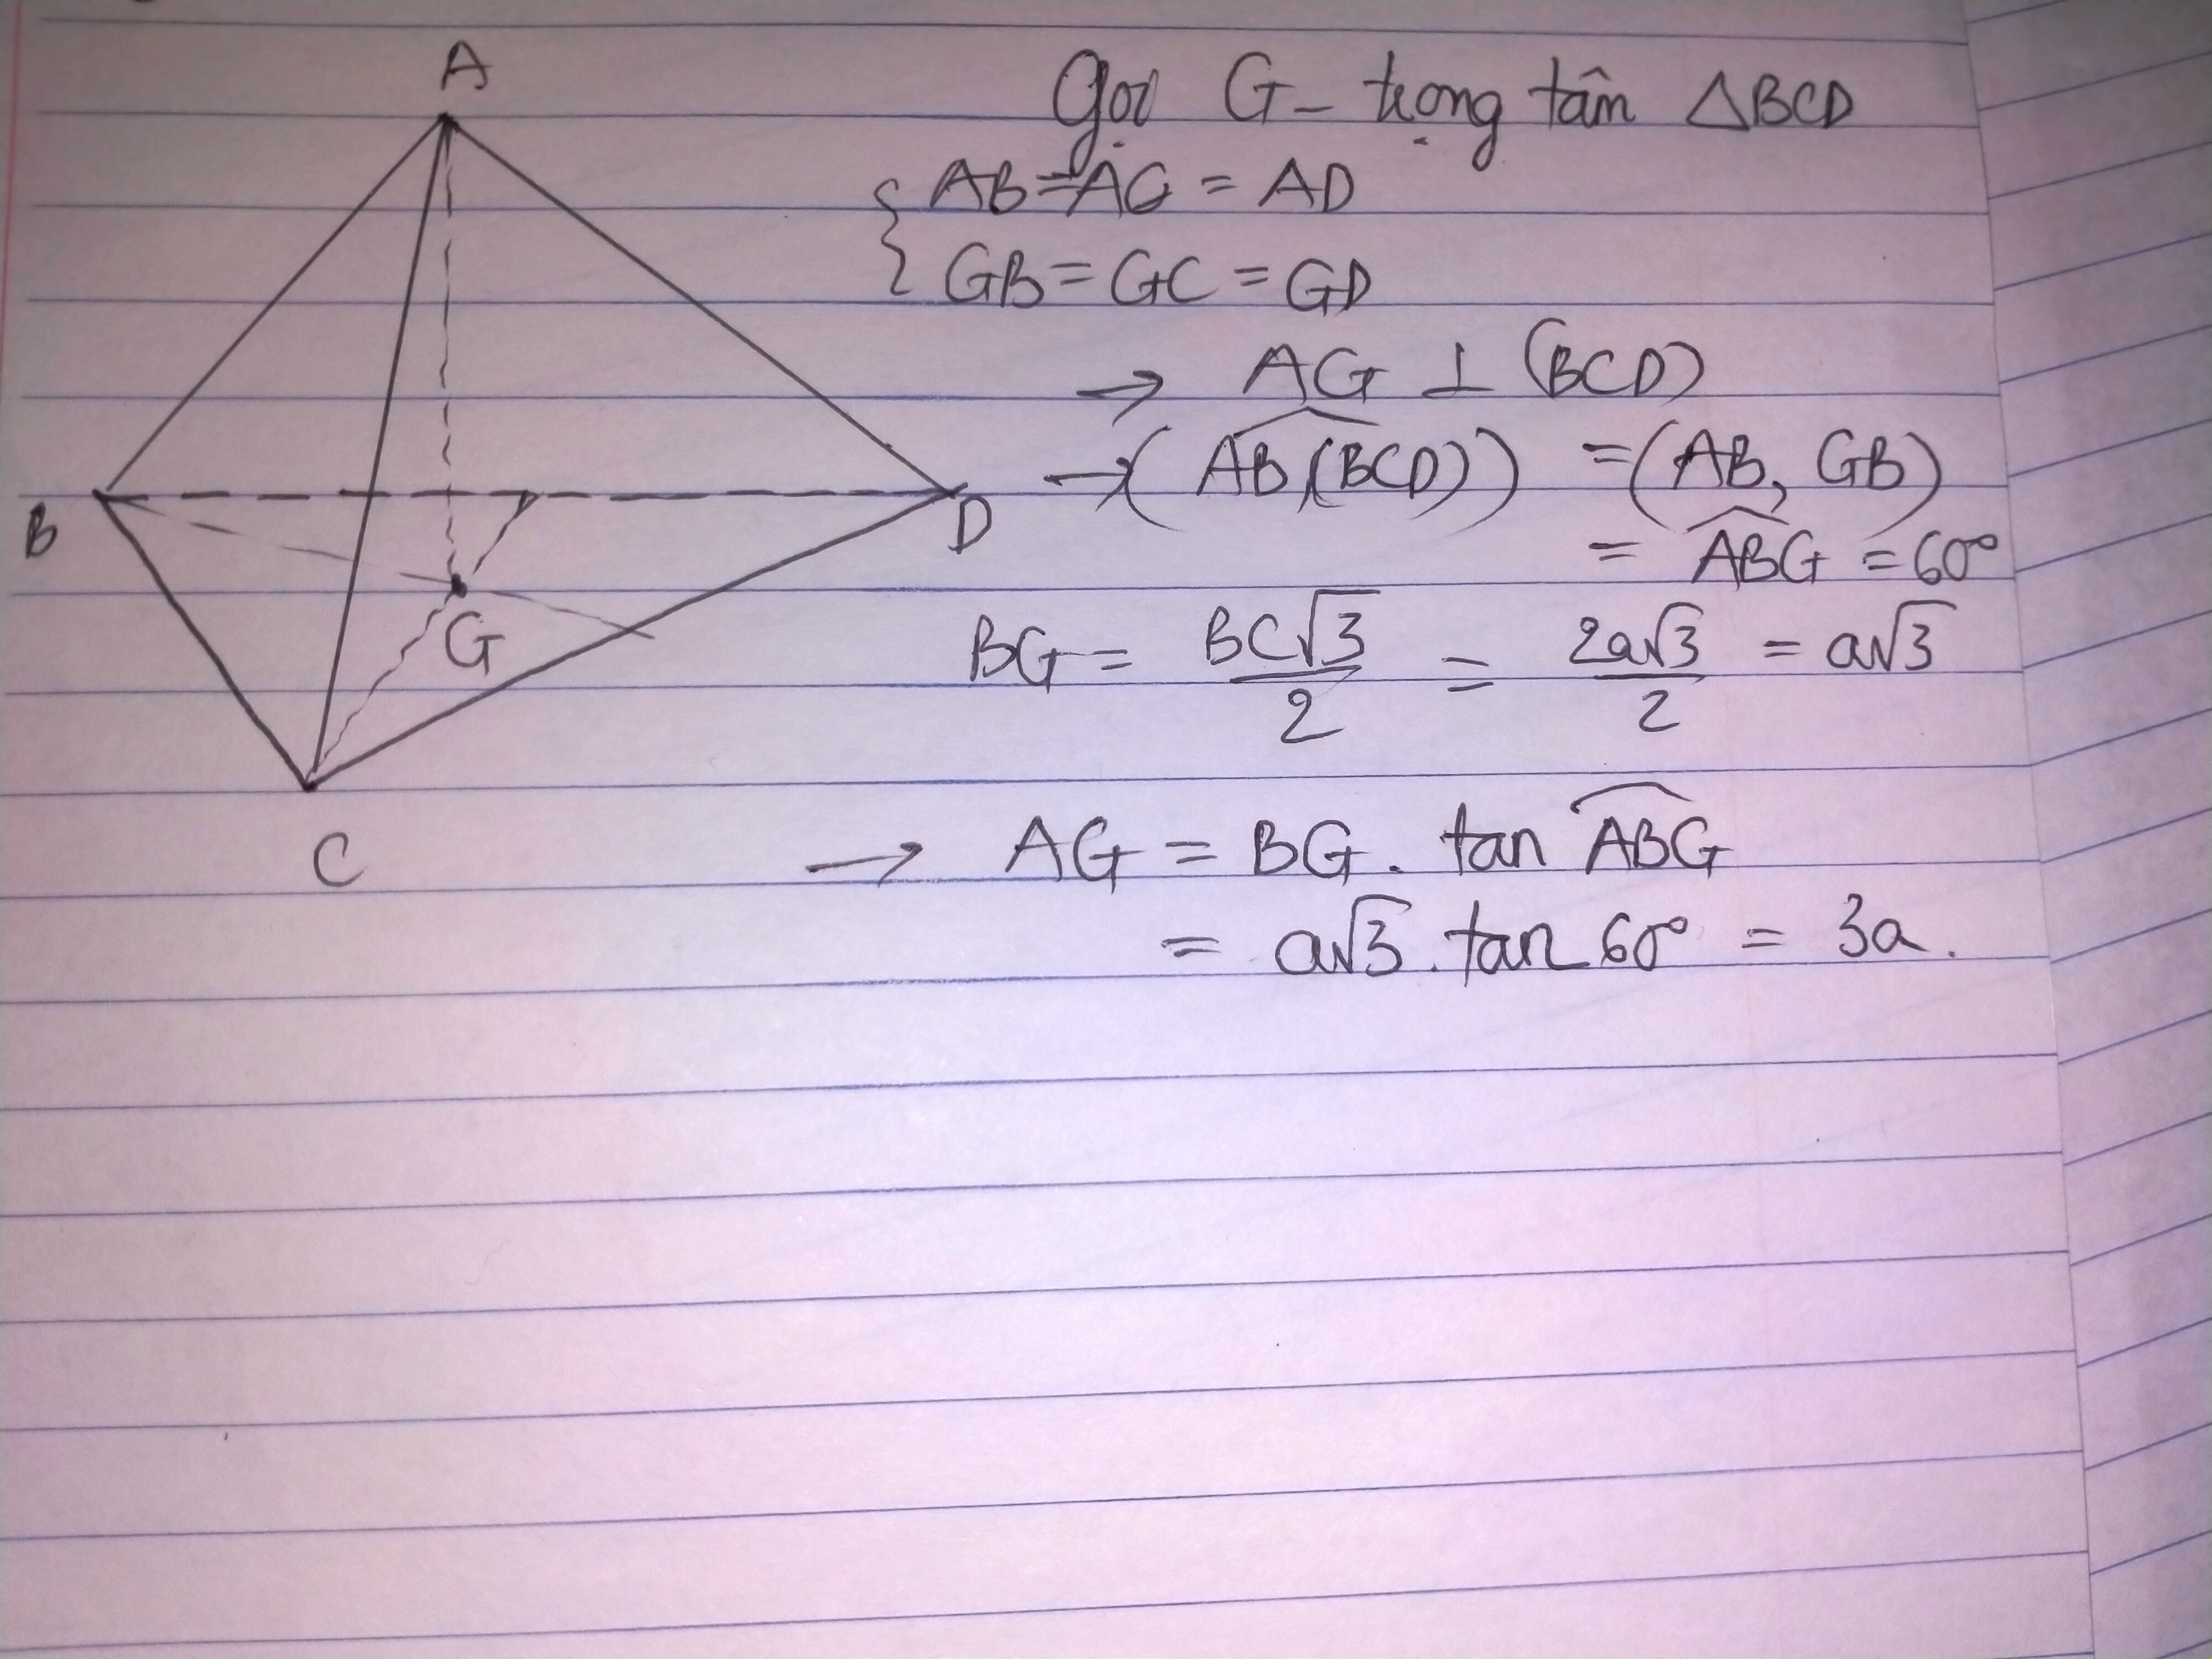 A
B
D
G
C
Gọi G - trọng tâm △BCD
{ AB = AC = AD
GB = GC = GD
→ AG ⊥ (BCD)
→ (AB, (BCD)) = (AB, GB)
= ABG = 60°
BG = BC√3/2 = 2a√3/2 = a√3
→ AG = BG . tan ABG
= a√3 . tan 60° = 3a.